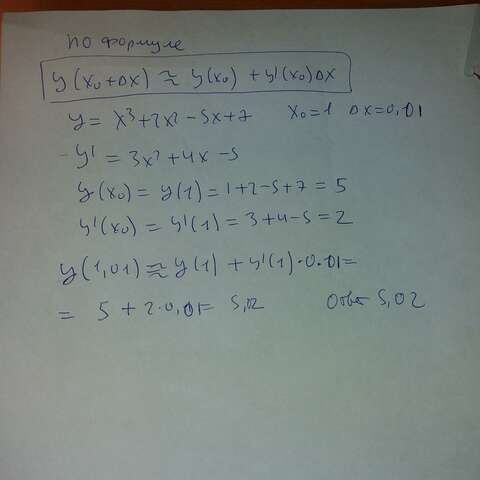 по формуле
y(x₀+Δx) ≈ y(x₀) + y'(x₀)Δx
y = x³+2x² - 5x+7 x₀=1 Δx=0,01
y' = 3x²+4x-5
y(x₀) = y(1) = 1+2-5+7 = 5
y'(x₀) = y'(1) = 3+4-5 = 2
y(1,01) ≈ y(1) + y'(1)·0.01=
= 5 + 2·0,01= 5,02 Ответ 5,02